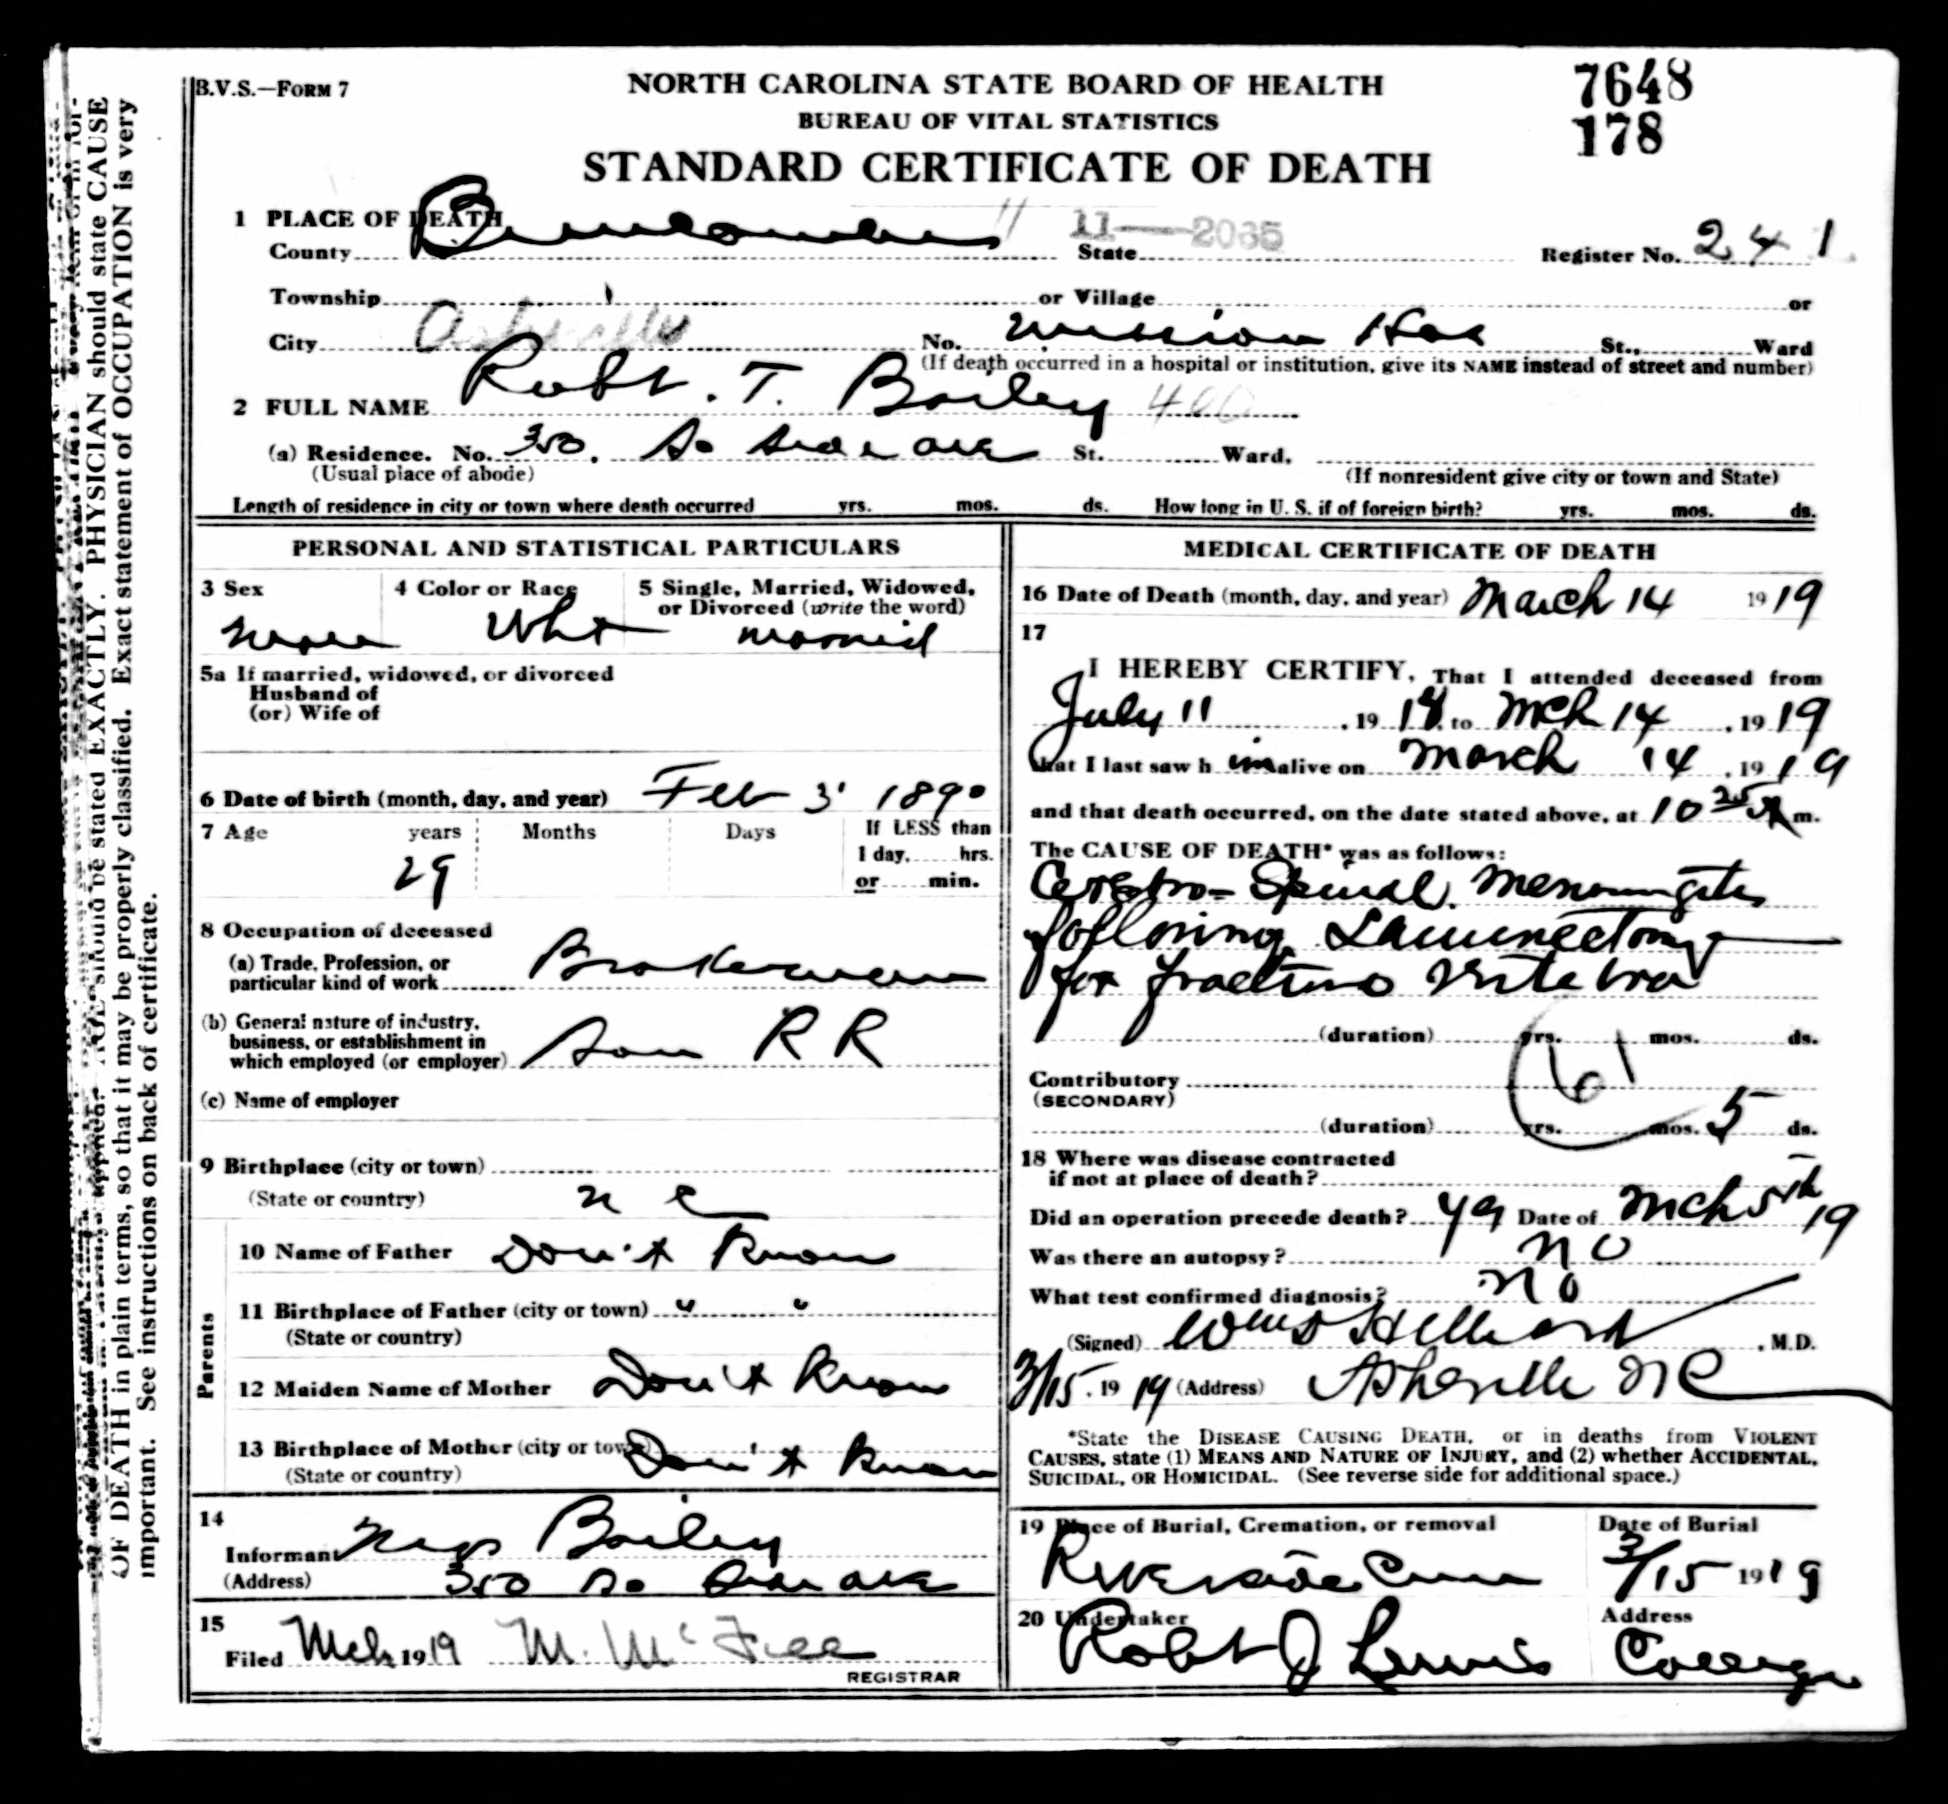 B.V.S.—FORM 7
NORTH CAROLINA STATE BOARD OF HEALTH
BUREAU OF VITAL STATISTICS
STANDARD CERTIFICATE OF DEATH
7648
178
1 PLACE OF DEATH
County Buncombe
11—2065
State
Register No. 241
Township or Village or
City Asheville No. Mission Hos St., Ward
(If death occurred in a hospital or institution, give its NAME instead of street and number)
2 FULL NAME Robt. T. Bailey 400
(a) Residence. No. 350. So Side ave St. Ward.
(Usual place of abode) (If nonresident give city or town and State)
Length of residence in city or town where death occurred yrs. mos. ds. How long in U. S. if of foreign birth? yrs. mos. ds.
PERSONAL AND STATISTICAL PARTICULARS
3 Sex 4 Color or Race 5 Single, Married, Widowed,
or Divorced (write the word)
Male Wht married
5a If married, widowed, or divorced
Husband of
(or) Wife of
6 Date of birth (month, day, and year) Feb 3 1890
7 Age years Months Days If LESS than
1 day, hrs.
29 or min.
8 Occupation of deceased
(a) Trade, Profession, or
particular kind of work Brakeman
(b) General nature of industry,
business, or establishment in
which employed (or employer) Sou R R
(c) Name of employer
9 Birthplace (city or town)
(State or country) N C
Parents
10 Name of Father Don't Know
11 Birthplace of Father (city or town) " "
(State or country)
12 Maiden Name of Mother Don't Know
13 Birthplace of Mother (city or town) Don't Know
(State or country)
14
Informant Mrs Bailey
(Address) 350 So Side ave
15
Filed Mch 1919 M. McFee
REGISTRAR
MEDICAL CERTIFICATE OF DEATH
16 Date of Death (month, day, and year) March 14 1919
17
I HEREBY CERTIFY, That I attended deceased from
July 11, 1918, to Mch 14, 1919
that I last saw h im alive on March 14, 1919
and that death occurred, on the date stated above, at 10 25 A m.
The CAUSE OF DEATH* was as follows:
Cerebro-Spinal. Meningitis
following Laminectomy
for fracture vertebra
(duration) yrs. mos. ds.
61
Contributory
(SECONDARY)
(duration) yrs. mos. 5 ds.
18 Where was disease contracted
if not at place of death?
Did an operation precede death? Yes Date of Mch 5th 19
Was there an autopsy? No
What test confirmed diagnosis? No
(Signed) Hilliard, M.D.
3/15, 1919 (Address) Asheville NC
*State the DISEASE CAUSING DEATH, or in deaths from VIOLENT
CAUSES, state (1) MEANS AND NATURE OF INJURY, and (2) whether ACCIDENTAL,
SUICIDAL, OR HOMICIDAL. (See reverse side for additional space.)
19 Place of Burial, Cremation, or removal Date of Burial
Riverside Cem 3/15 1919
20 Undertaker Address
Robt J Lewis College
should be stated EXACTLY. PHYSICIAN should state CAUSE
OF DEATH in plain terms, so that it may be properly classified. Exact statement of OCCUPATION is very
important. See instructions on back of certificate.